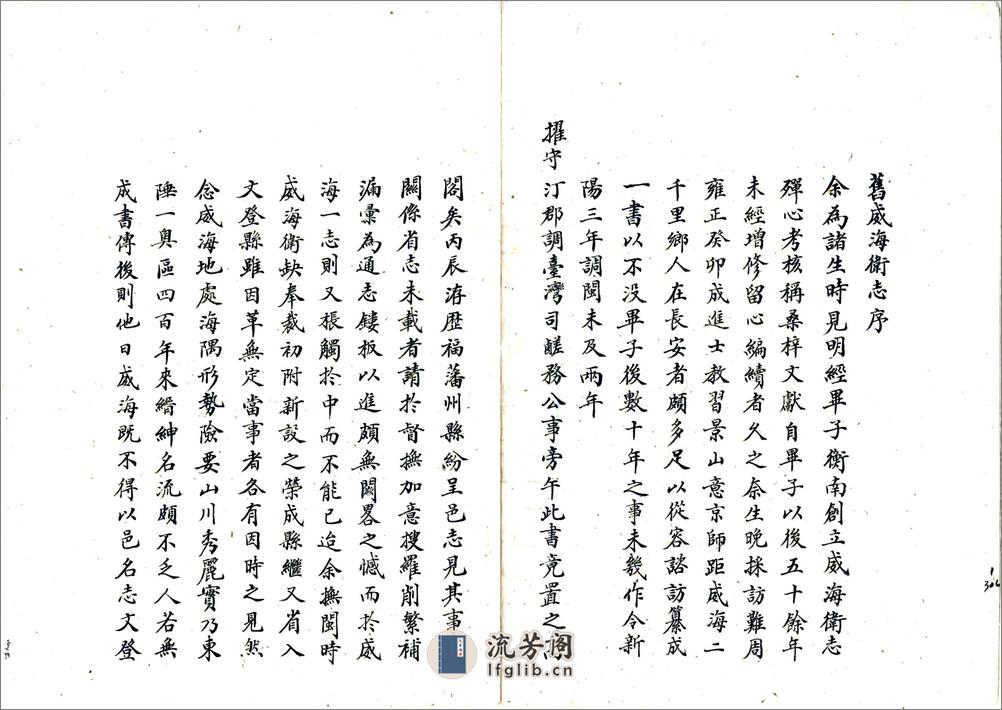 舊威海衛志序
余為諸生時見明經畢子衡南創立威海衛志
殫心考核稱桑梓文獻自畢子以後五十餘年
未經增修留心編續者久之奈生晚採訪難周
雍正癸卯成進士教習景山意京師距威海二
千里鄉人在長安者頗多足以從容諮訪纂成
一書以不没畢子後數十年之事未幾作令新
陽三年調閩未及兩年
擢守汀郡調臺灣司鹺務公事旁午此書竟置之高
閣矣丙辰洊歷福藩州縣紛呈邑志見其事
關係省志未載者請於督撫加意搜羅削繁補
漏彙為通志鏤板以進頗無闕畧之憾而於威
海一志則又棖觸於中而不能已迨余撫閩時
威海衛缺奉裁初附新設之榮成縣繼又省入
文登縣雖因革無定當事者各有因時之見然
念威海地處海隅形勢險要山川秀麗實乃東
陲一奥區四百年來縉紳名流頗不乏人若無
成書傳後則他日威海既不得以邑名志文登
1
306
流芳阁
lfglib.cn